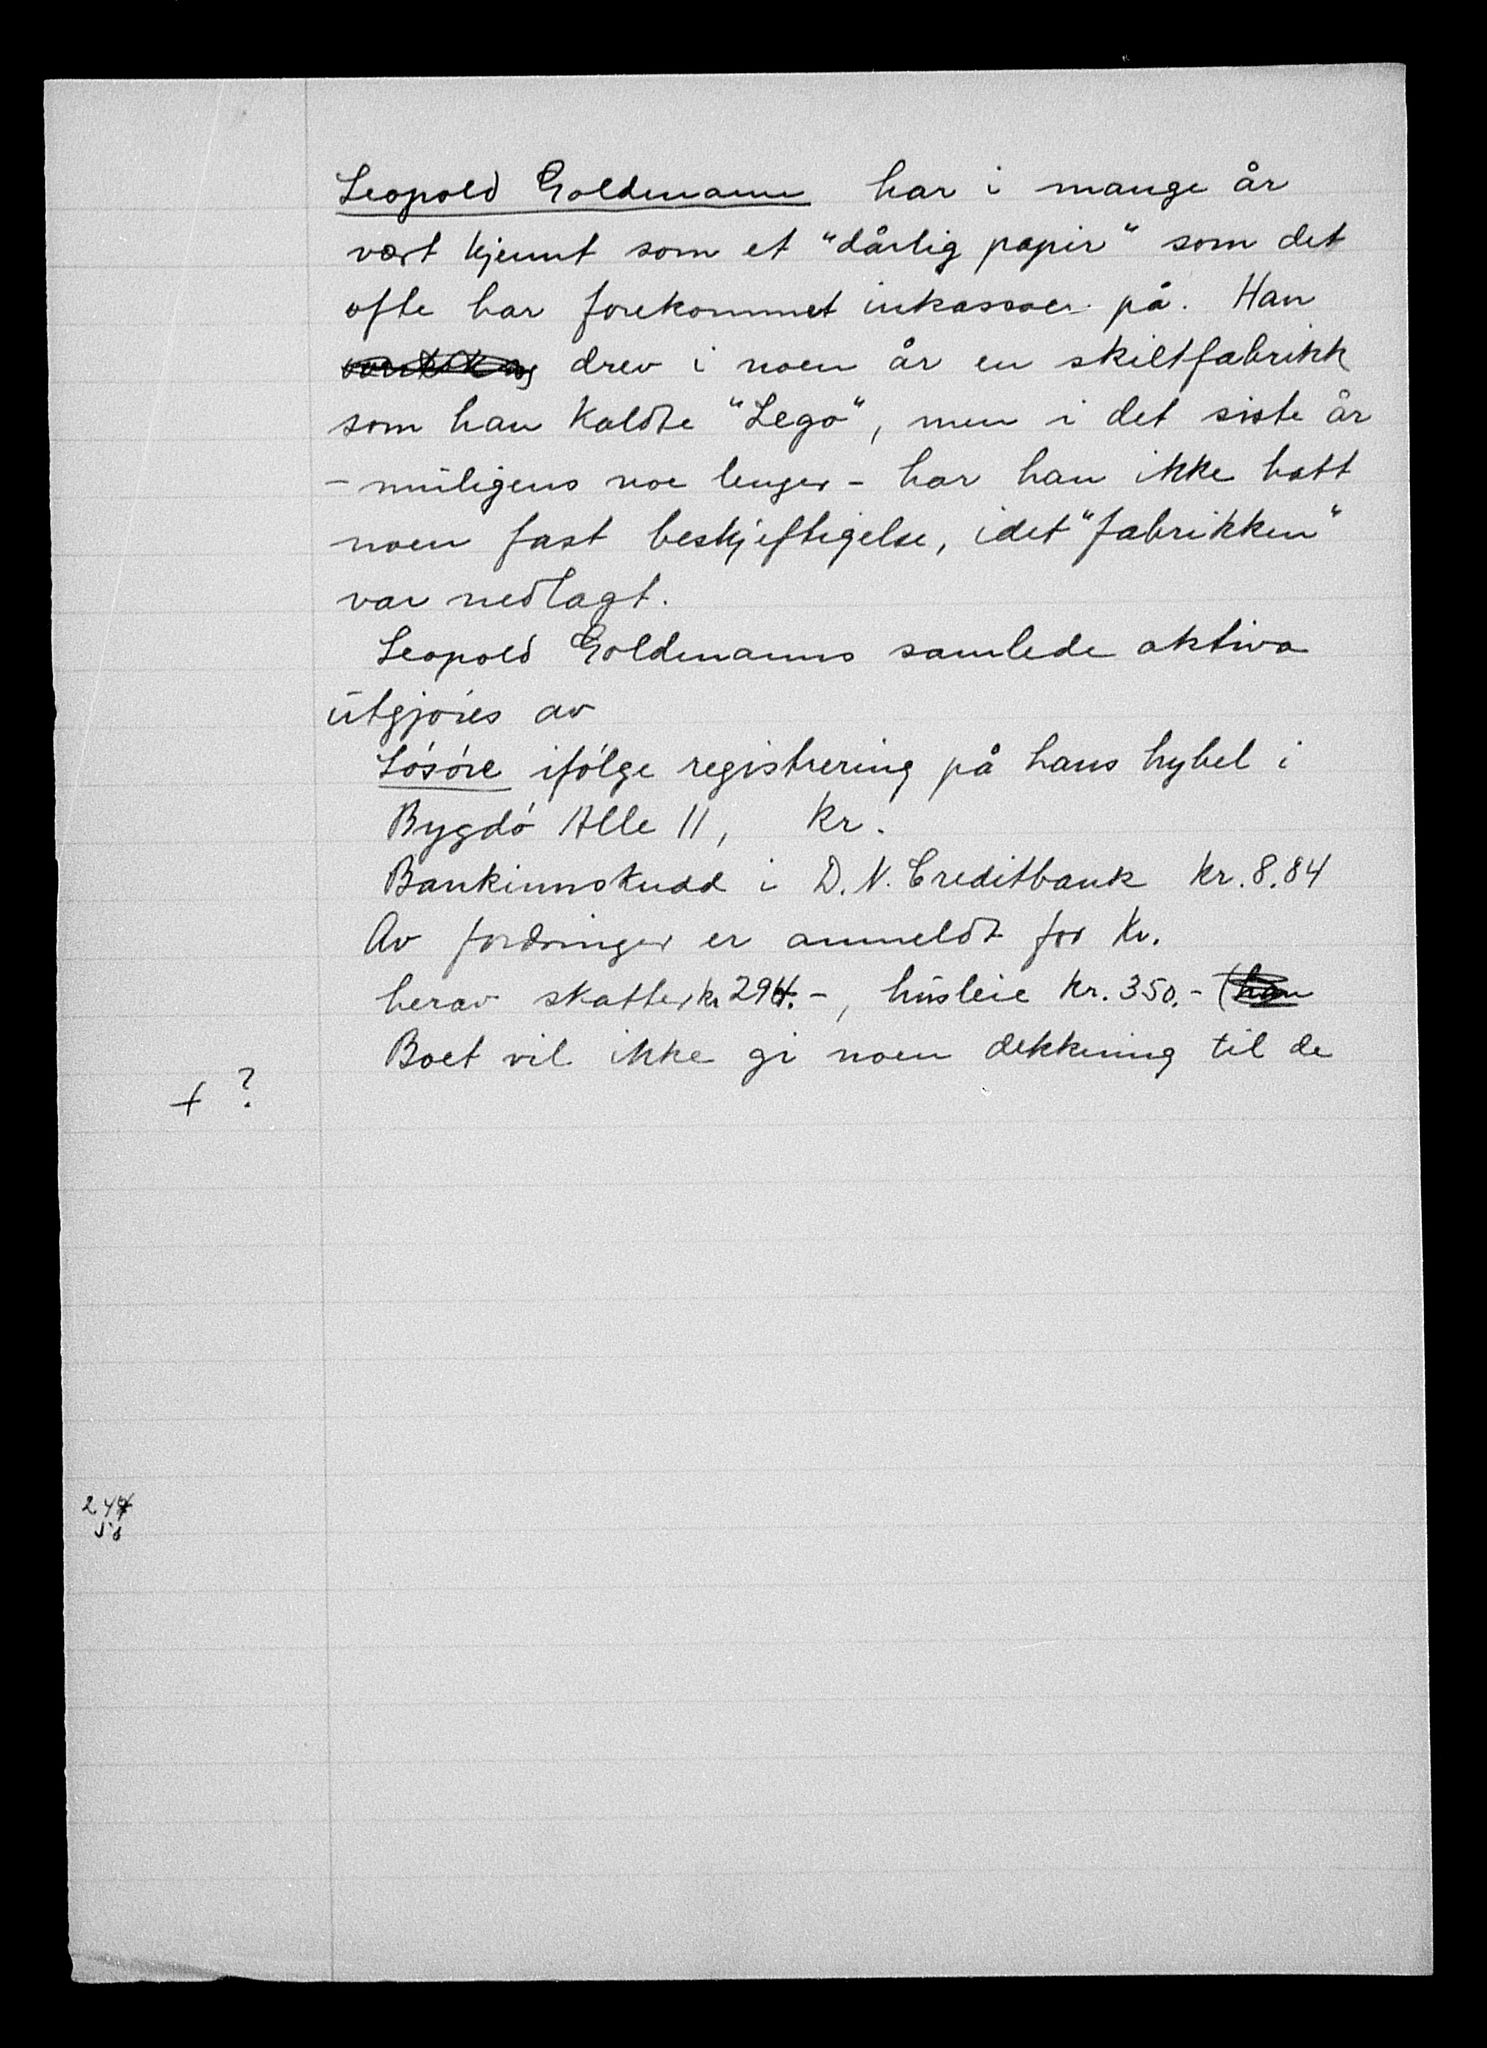 Leopold Goldmann har i mange år
vært kjennt som et "dårlig papir" som det
ofte har forekommet inkassoer på. Han
drev i noen år en skiltfabrikk
som han kaldte "Lego", men i det siste år
- muligens noe lenger - har han ikke hatt
noen fast beskjeftigelse, idet "fabrikken"
var nedlagt.
Leopold Goldmanns samlede aktiva
utgjøres av
Løsøre ifølge registrering på hans hybel i
Bygdö Alle 11, kr.
Bankinnskudd i D.N. Creditbank kr. 8.84
Av fordringer er anmeldt for kr.
herav skatter kr 294.-, husleie kr. 350.- (han
Boet vil ikke gi noen dekkning til de
+ ?